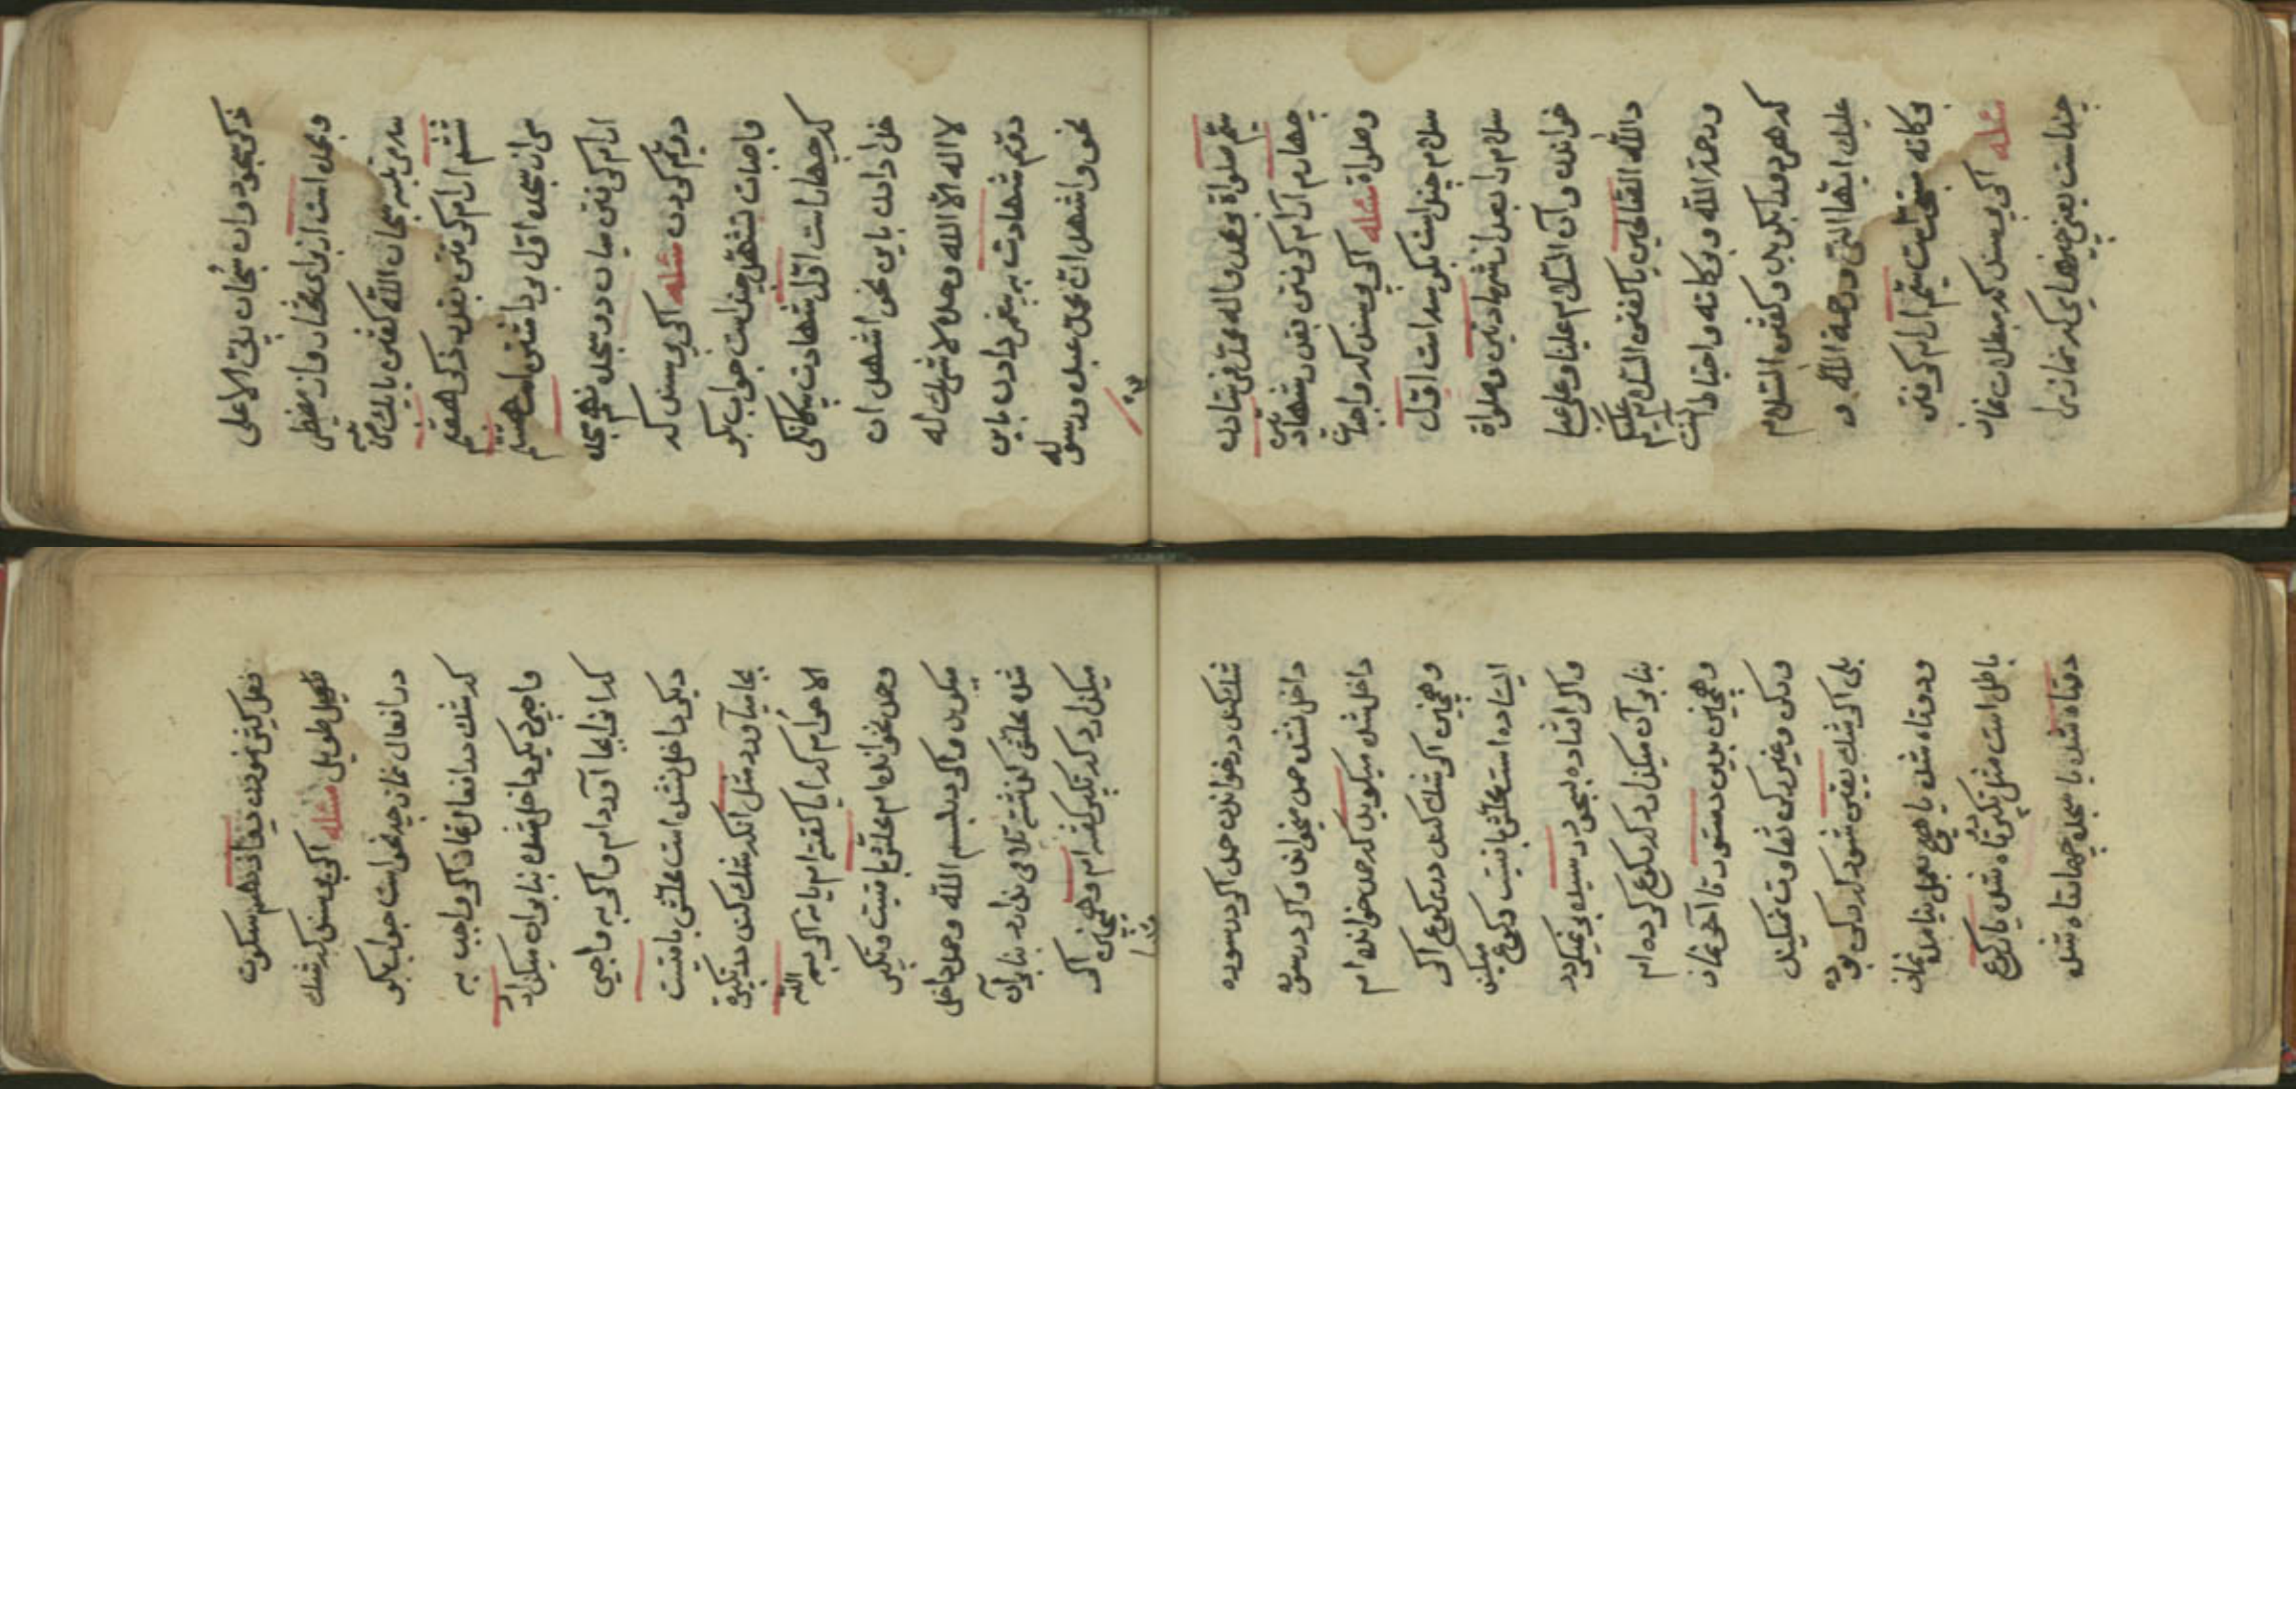 ذکر سجود و ان سبحان ربی الاعلی
و بحمده است از برای مختار و از مضطر
سه مرتبه سبحان الله کفتن یا یک مرتبه
ششم ارام کرفتن بقدر ذکر هفتم
سر از سجده اول برداشتن است هشتم
ارام کرفتن میان دو سجده نهم سجده
دویم کردن مسئله اکر پرسند که
واجبات تشهد چند است جواب بکو
که چهار است اول شهادت بیکانکی
خدا دادن باین نحو اشهد ان
لا اله الا الله وحده لا شریک له
دویم شهادت به پیغمبر دادن باین
نحو و اشهد ان محمدا عبده و رسوله
سیم صلواة بر محمد و آله محمد فرستادن
چهارم آرام کرفتن بقدر شهادتین
و صلواة مسئله اکر پرسند که واجبات
سلام چند است بکو سه است اول
سلام را بعد از شهادتین و صلواة
خواندن و آن السلام علینا و علی عبا
دالله الصالحین یا کفتن السلام علیکم
و رحمة الله و برکاته و احتیاط آنست
که هر دو را بکوید و کفتن السلام
علیک ایها النبی و رحمة الله و
برکاته سنت است سیم ارام کرفتن
مسئله اکر پرسند که مبطلات نماز
چند است یعنی چیزهای که نماز را
فعل کثیر نمودن دوازدهم سکوت
طویل مسئله اکر پرسند که شک
در افعال نماز چه نحو است جواب بکو
که شک در افعال نماز اکر واجب به
واجبی دیکر داخل شده بنا بر ان میکذارد
که انرا بجا آورده ام و اکر به واجبی
دیکر داخل نشده است عملش بافتیست
بجا میآورد مثل انکه شک کند در تکبیرة
الاحرام که ایا کفته ام یا نه اکر بسم الله
و حمد نخوانده ام عملش بافتیست و تکبیر
میکوید و اکر به بسم الله و حمد داخل
شده عملش کذشته تلافی ندارد بنا بر آن
میکذارد که تکبیر کفته ام و همچنین اکر
شک کند در خواندن حمد اکر در سوره
داخل نشده حمد میخواند و اکر در سوره
داخل شده میکوید که حمد خوانده ام
و همچنین اکر شک کند در رکوع اکر
ایستاده است عملش بافتیست رکوع میکند
و اکر افتاده بسجود رسیده برنمیکردد
بنا بر آن میکذارد که رکوع کرده ام
و همچنین بدین دستور تا آخر نماز
و رکن و غیر رکن تفاوت نمیکند
بلی اکر شک یقین شود که رکنی بوده
و دوتاه شده یا هیچ بعمل نیامده نماز
باطل است مثل تکبیر دوتاه شده یا رکوع
دوتاه شده یا سجده چهارتاه شده